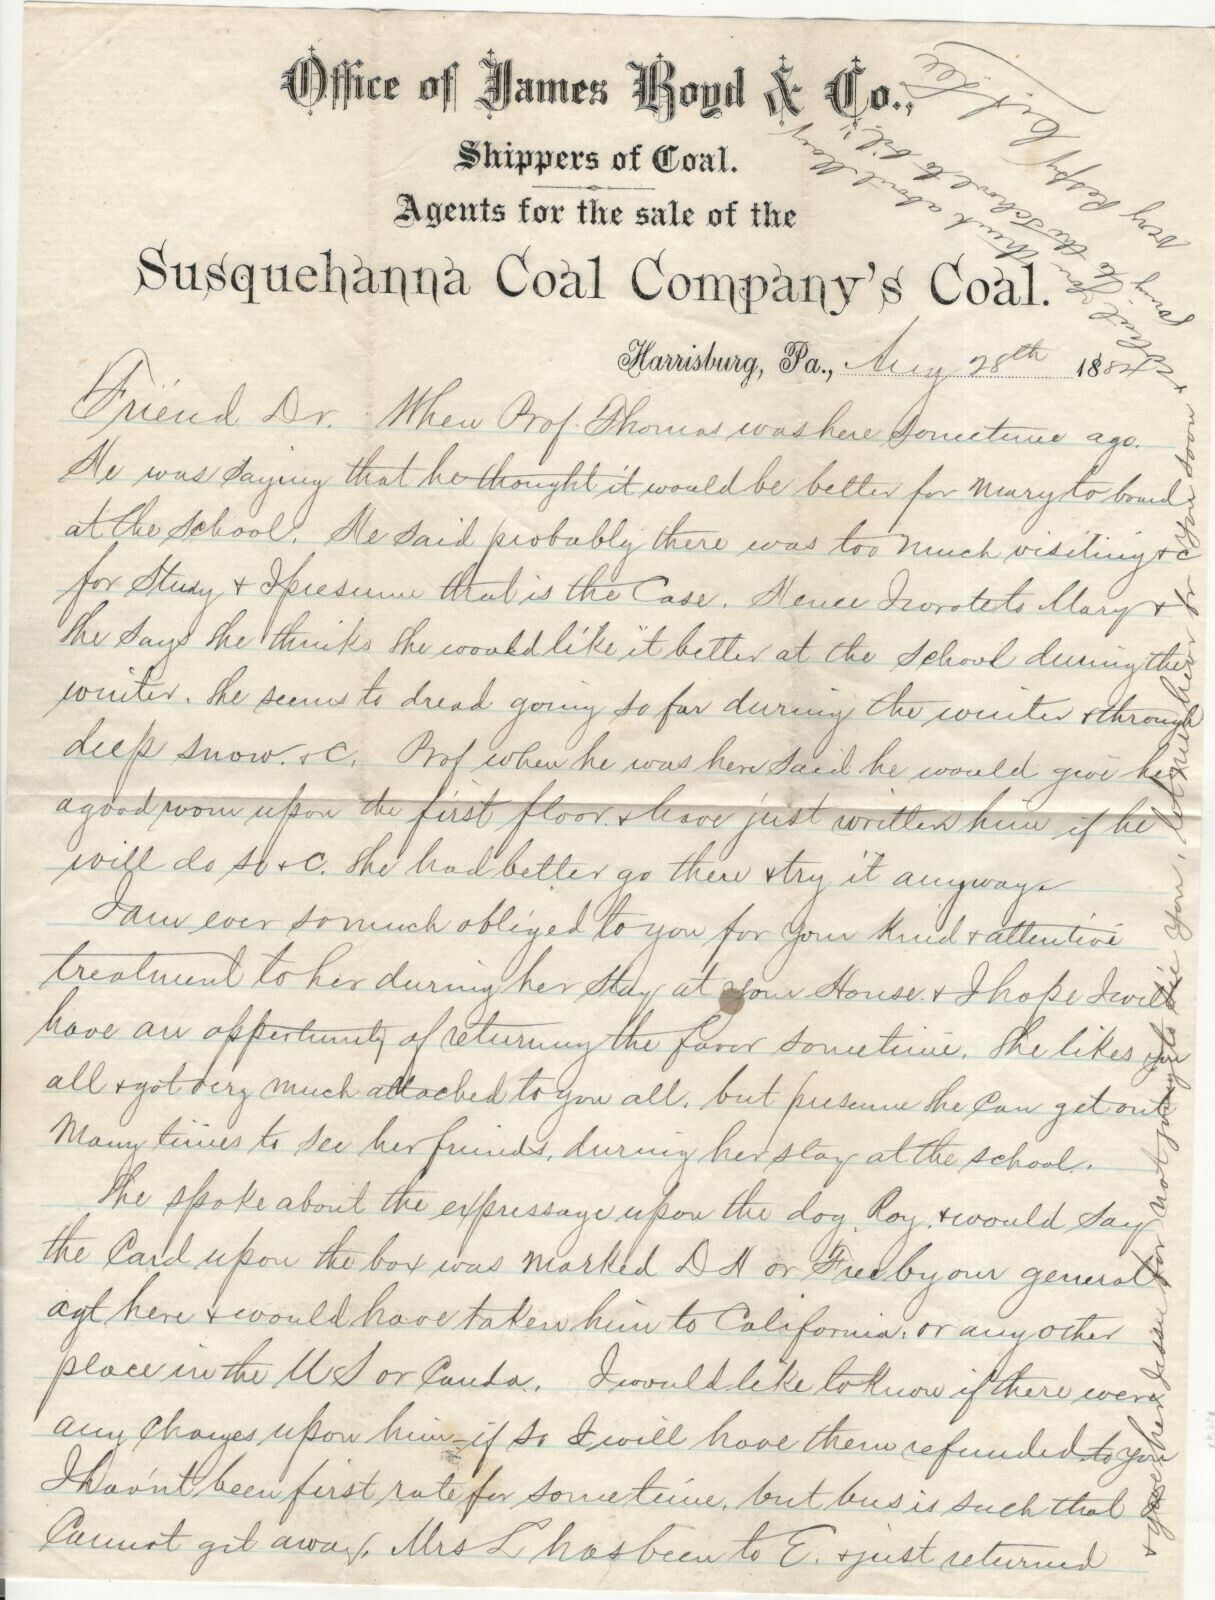 Office of James Boyd & Co.,
Shippers of Coal.
Agents for the sale of the
Susquehanna Coal Company's Coal.
Harrisburg, Pa., Aug 28th 1884
Friend Dr. When Prof. Thomas was here sometime ago.
He was saying that he thought it would be better for Mary to board
at the school. He said probably there was too much visiting &c
for Study & I presume that is the Case. Hence I wrote to Mary &
She says she thinks she would like it better at the school during the
winter. She seems to dread going so far during the winter & through
deep snow. &c. Prof when he was here said he would give her
a good room upon the first floor. & have just written him if he
will do so &c. She had better go there & try it anyway.
I am ever so much obliged to you for your kind & attentive
treatment to her during her stay at your House. & I hope I will
have an opportunity of returning the favor sometime. She likes you
all & got very much attached to you all. but presume she can get out
many times to see her friends, during her stay at the school.
She spoke about the expressage upon the dog Roy. & would say
the Card upon the box was marked D H or Free by our general
agt here & would have taken him to California. or any other
place in the U S or Canda. I would like to know if there were
any charges upon him - if so I will have them refunded to you
I havn't been first rate for sometime, but bus is such that
Cannot git away. Mrs L has been to E. & just returned
& her for not going to see you. let me hear fr you soon &
what you think about Mary
going to the School to
Very Respy